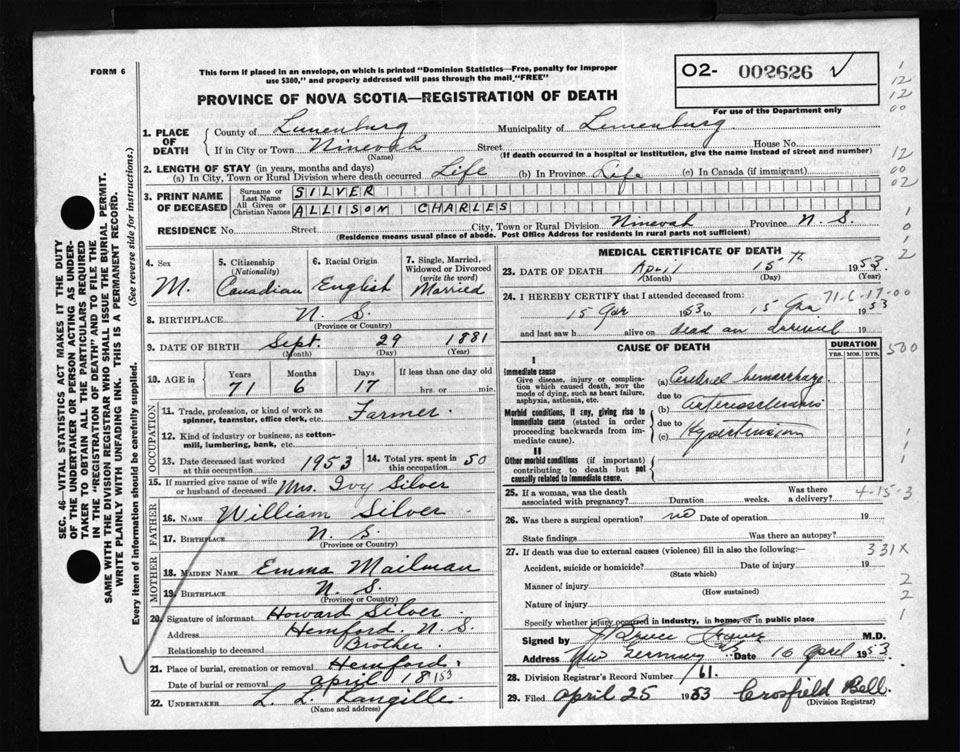 FORM 6
This form if placed in an envelope, on which is printed "Dominion Statistics—Free, penalty for improper
use $300," and properly addressed will pass through the mail "FREE"
02- 002626 ✓
For use of the Department only
PROVINCE OF NOVA SCOTIA—REGISTRATION OF DEATH
1. PLACE OF DEATH
County of Lunenburg Municipality of Lunenburg
If in City or Town Ninevah Street House No.
(Name) (If death occurred in a hospital or institution, give the name instead of street and number)
2. LENGTH OF STAY (in years, months and days)
(a) In City, Town or Rural Division where death occurred Life (b) In Province Life (c) In Canada (if immigrant)
3. PRINT NAME OF DECEASED
Surname or Last Name SILVER
All Given or Christian Names ALLISON CHARLES
RESIDENCE No. Street City, Town or Rural Division Ninevah Province N. S.
(Residence means usual place of abode. Post Office Address for residents in rural parts not sufficient)
4. Sex M.
5. Citizenship (Nationality) Canadian
6. Racial Origin English
7. Single, Married, Widowed or Divorced (write the word) Married
8. BIRTHPLACE N. S.
(Province or Country)
9. DATE OF BIRTH Sept. 29 1881
(Month) (Day) (Year)
10. AGE in Years Months Days If less than one day old
71 6 17 hrs. or min.
OCCUPATION
11. Trade, profession, or kind of work as spinner, teamster, office clerk, etc. Farmer.
12. Kind of industry or business, as cotton-mill, lumbering, bank, etc.
13. Date deceased last worked at this occupation 1953
14. Total yrs. spent in this occupation 50
15. If married give name of wife or husband of deceased Mrs. Ivy Silver
FATHER
16. NAME William Silver
17. BIRTHPLACE N. S.
(Province or Country)
MOTHER
18. MAIDEN NAME Emma Mailman
19. BIRTHPLACE N. S.
(Province or Country)
20. Signature of informant Howard Silver
Address Hemford N. S.
Relationship to deceased Brother
21. Place of burial, cremation or removal Hemford.
Date of burial or removal April 18/53
22. UNDERTAKER L. L. Langille
(Name and address)
MEDICAL CERTIFICATE OF DEATH
23. DATE OF DEATH April 15th 1953
(Month) (Day) (Year)
24. I HEREBY CERTIFY that I attended deceased from: 71-6-17-00
15 Apr 1953 to 15 Apr 1953
and last saw h alive on dead on arrival 19
CAUSE OF DEATH
DURATION
YRS. MOS. DYS.
I
Immediate cause
Give disease, injury or complication which caused death, NOT the mode of dying, such as heart failure, asphyxia, asthenia, etc.
(a) Cerebral hemorrhage
due to
Morbid conditions, if any, giving rise to immediate cause (stated in order proceeding backwards from immediate cause).
(b) arteriosclerosis
due to
(c) Hypertension
II
Other morbid conditions (if important) contributing to death but not causally related to immediate cause.
25. If a woman, was the death associated with pregnancy? Duration weeks. Was there a delivery? 4-15-3
26. Was there a surgical operation? no Date of operation 19
State findings Was there an autopsy?
27. If death was due to external causes (violence) fill in also the following:- 331X
Accident, suicide or homicide? Date of injury 19
(State which)
Manner of injury
(How sustained)
Nature of injury
Specify whether injury occurred in industry, in home, or in public place
Signed by J Bruce M.D.
Address New Germany NS Date 16 April 1953
28. Division Registrar's Record Number 161.
29. Filed April 25 1953 Crosfield Bell.
(Division Registrar)
SEC. 46—VITAL STATISTICS ACT MAKES IT THE DUTY
OF THE UNDERTAKER OR PERSON ACTING AS UNDER-
TAKER TO OBTAIN ALL THE PARTICULARS REQUIRED
IN THE "REGISTRATION OF DEATH" AND TO FILE THE
SAME WITH THE DIVISION REGISTRAR WHO SHALL ISSUE THE BURIAL PERMIT.
WRITE PLAINLY WITH UNFADING INK. THIS IS A PERMANENT RECORD.
Every item of information should be carefully supplied. (See reverse side for instructions.)
1
12
12
00
12
00
02
1
0
1
2
500
1
2
2
1